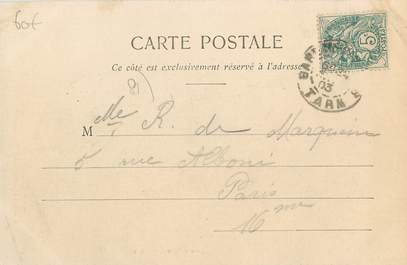 60€
CARTE POSTALE
Ce côté est exclusivement réservé à l'adresse
5
TARN
03
81
M Me R. de
rue Alboni
Paris
16me